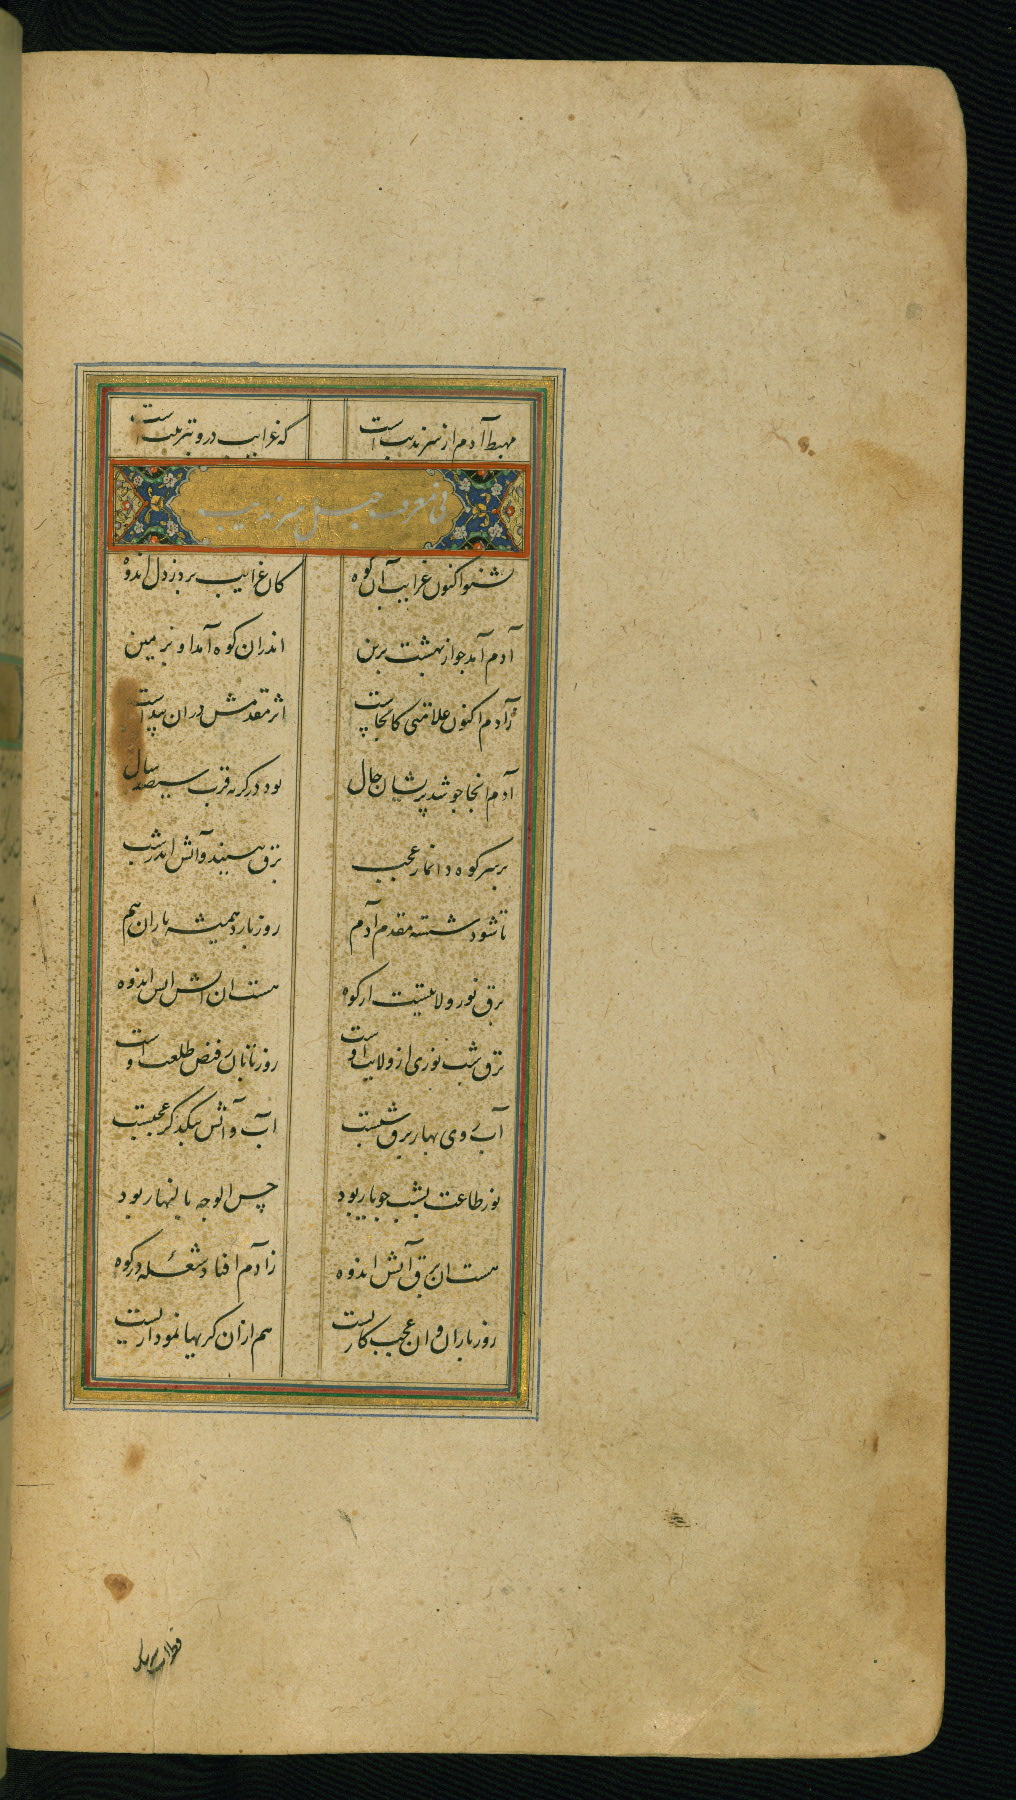 مهبط آدم از سرندیب است که غرایب درو بترتیب است
فی معرفت جبل سرندیب
شنو اکنون غرایب آن کوه کان غرایب برد ز دل اندوه
آدم آمد جو از بهشت برین اندران کوه آمد او بزمین
زآدم اکنون علامتی کانجاست اثر مقدمش دران پیداست
آدم انجا جو شد پریشان حال بود در کریه قرب سیصد سال
بر سر کوه دانما عجب برق بینند و آتش اندر شب
تا شود شسته مقدم آدم روز بارد همیشه باران هم
برق نور ولایتیست از کوه هست ان اتش این اندوه
برق شب نوری از ولایت اوست روز تابان ز فیض طلعت اوست
آب وی بهار برق شبست آب و آتش بیکدکر عجبست
نور طاعت بشب جو باربود حسن الوجه بالنهار بود
هست ان برق آتش اندوه زآدم افتاد شعله در کوه
روز باران و ان عجب کاریست هم ازان کریها نموداریست